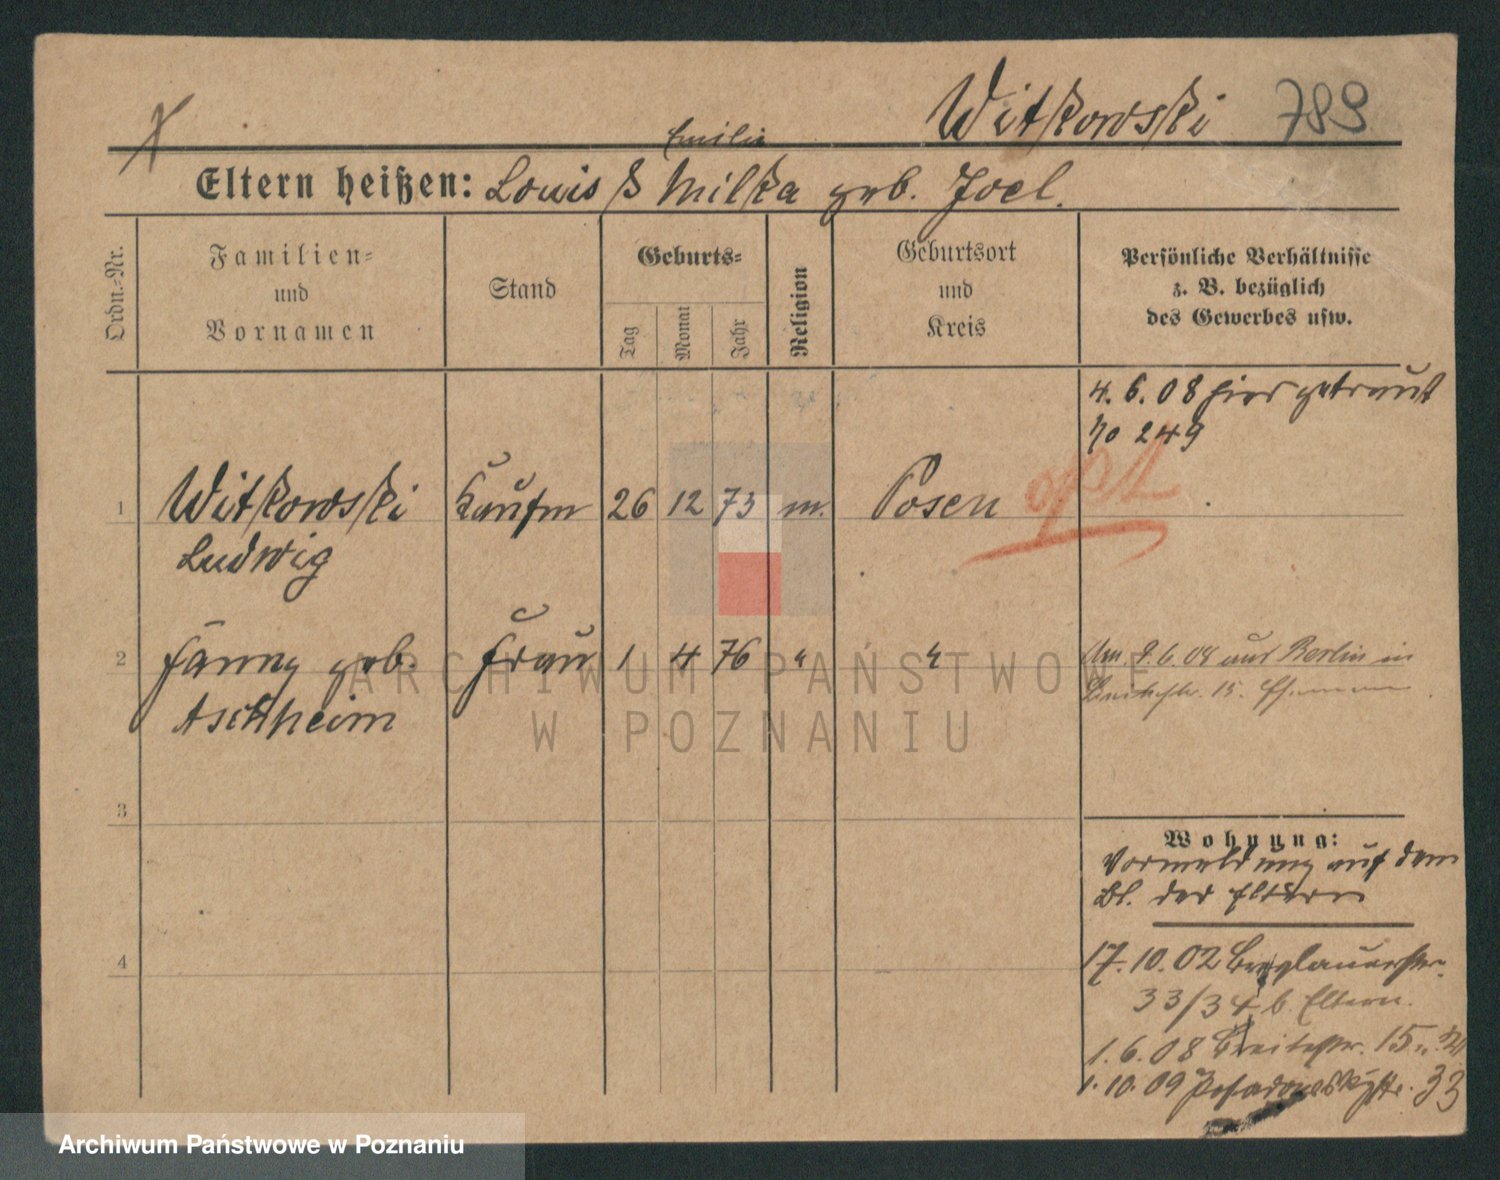 Witkowski 789
Emilie
Eltern heißen: Louis & Milka geb. Joel.
Ordn.-Nr.
Familien-
und
Vornamen
Stand
Geburts-
Tag
Monat
Jahr
Religion
Geburtsort
und
Kreis
Persönliche Verhältnisse
z. B. bezüglich
des Gewerbes usw.
4. 6. 08 hier getraut
No 249
1 Witkowski Kaufm 26 12 73 m. Posen
opt
Ludwig
2 Fanny geb. Frau 1 4 76 " "
Aschheim
Am 9.6.08 aus Berlin in
Breitestr. 15.
3
Wohnung:
Vormeldung auf dem
Bl. der Eltern
4
17. 10. 02 Breslauerstr.
33/34 b. Eltern.
1. 6. 08 Breitestr. 15
1. 10. 09 Posadowskystr. 33
ARCHIWUM PAŃSTWOWE
W POZNANIU
Archiwum Państwowe w Poznaniu